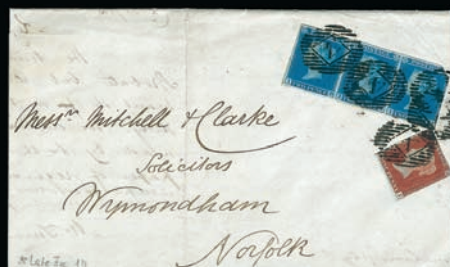 Messrs Mitchell & Clarke
Solicitors
Wymondham
Norfolk